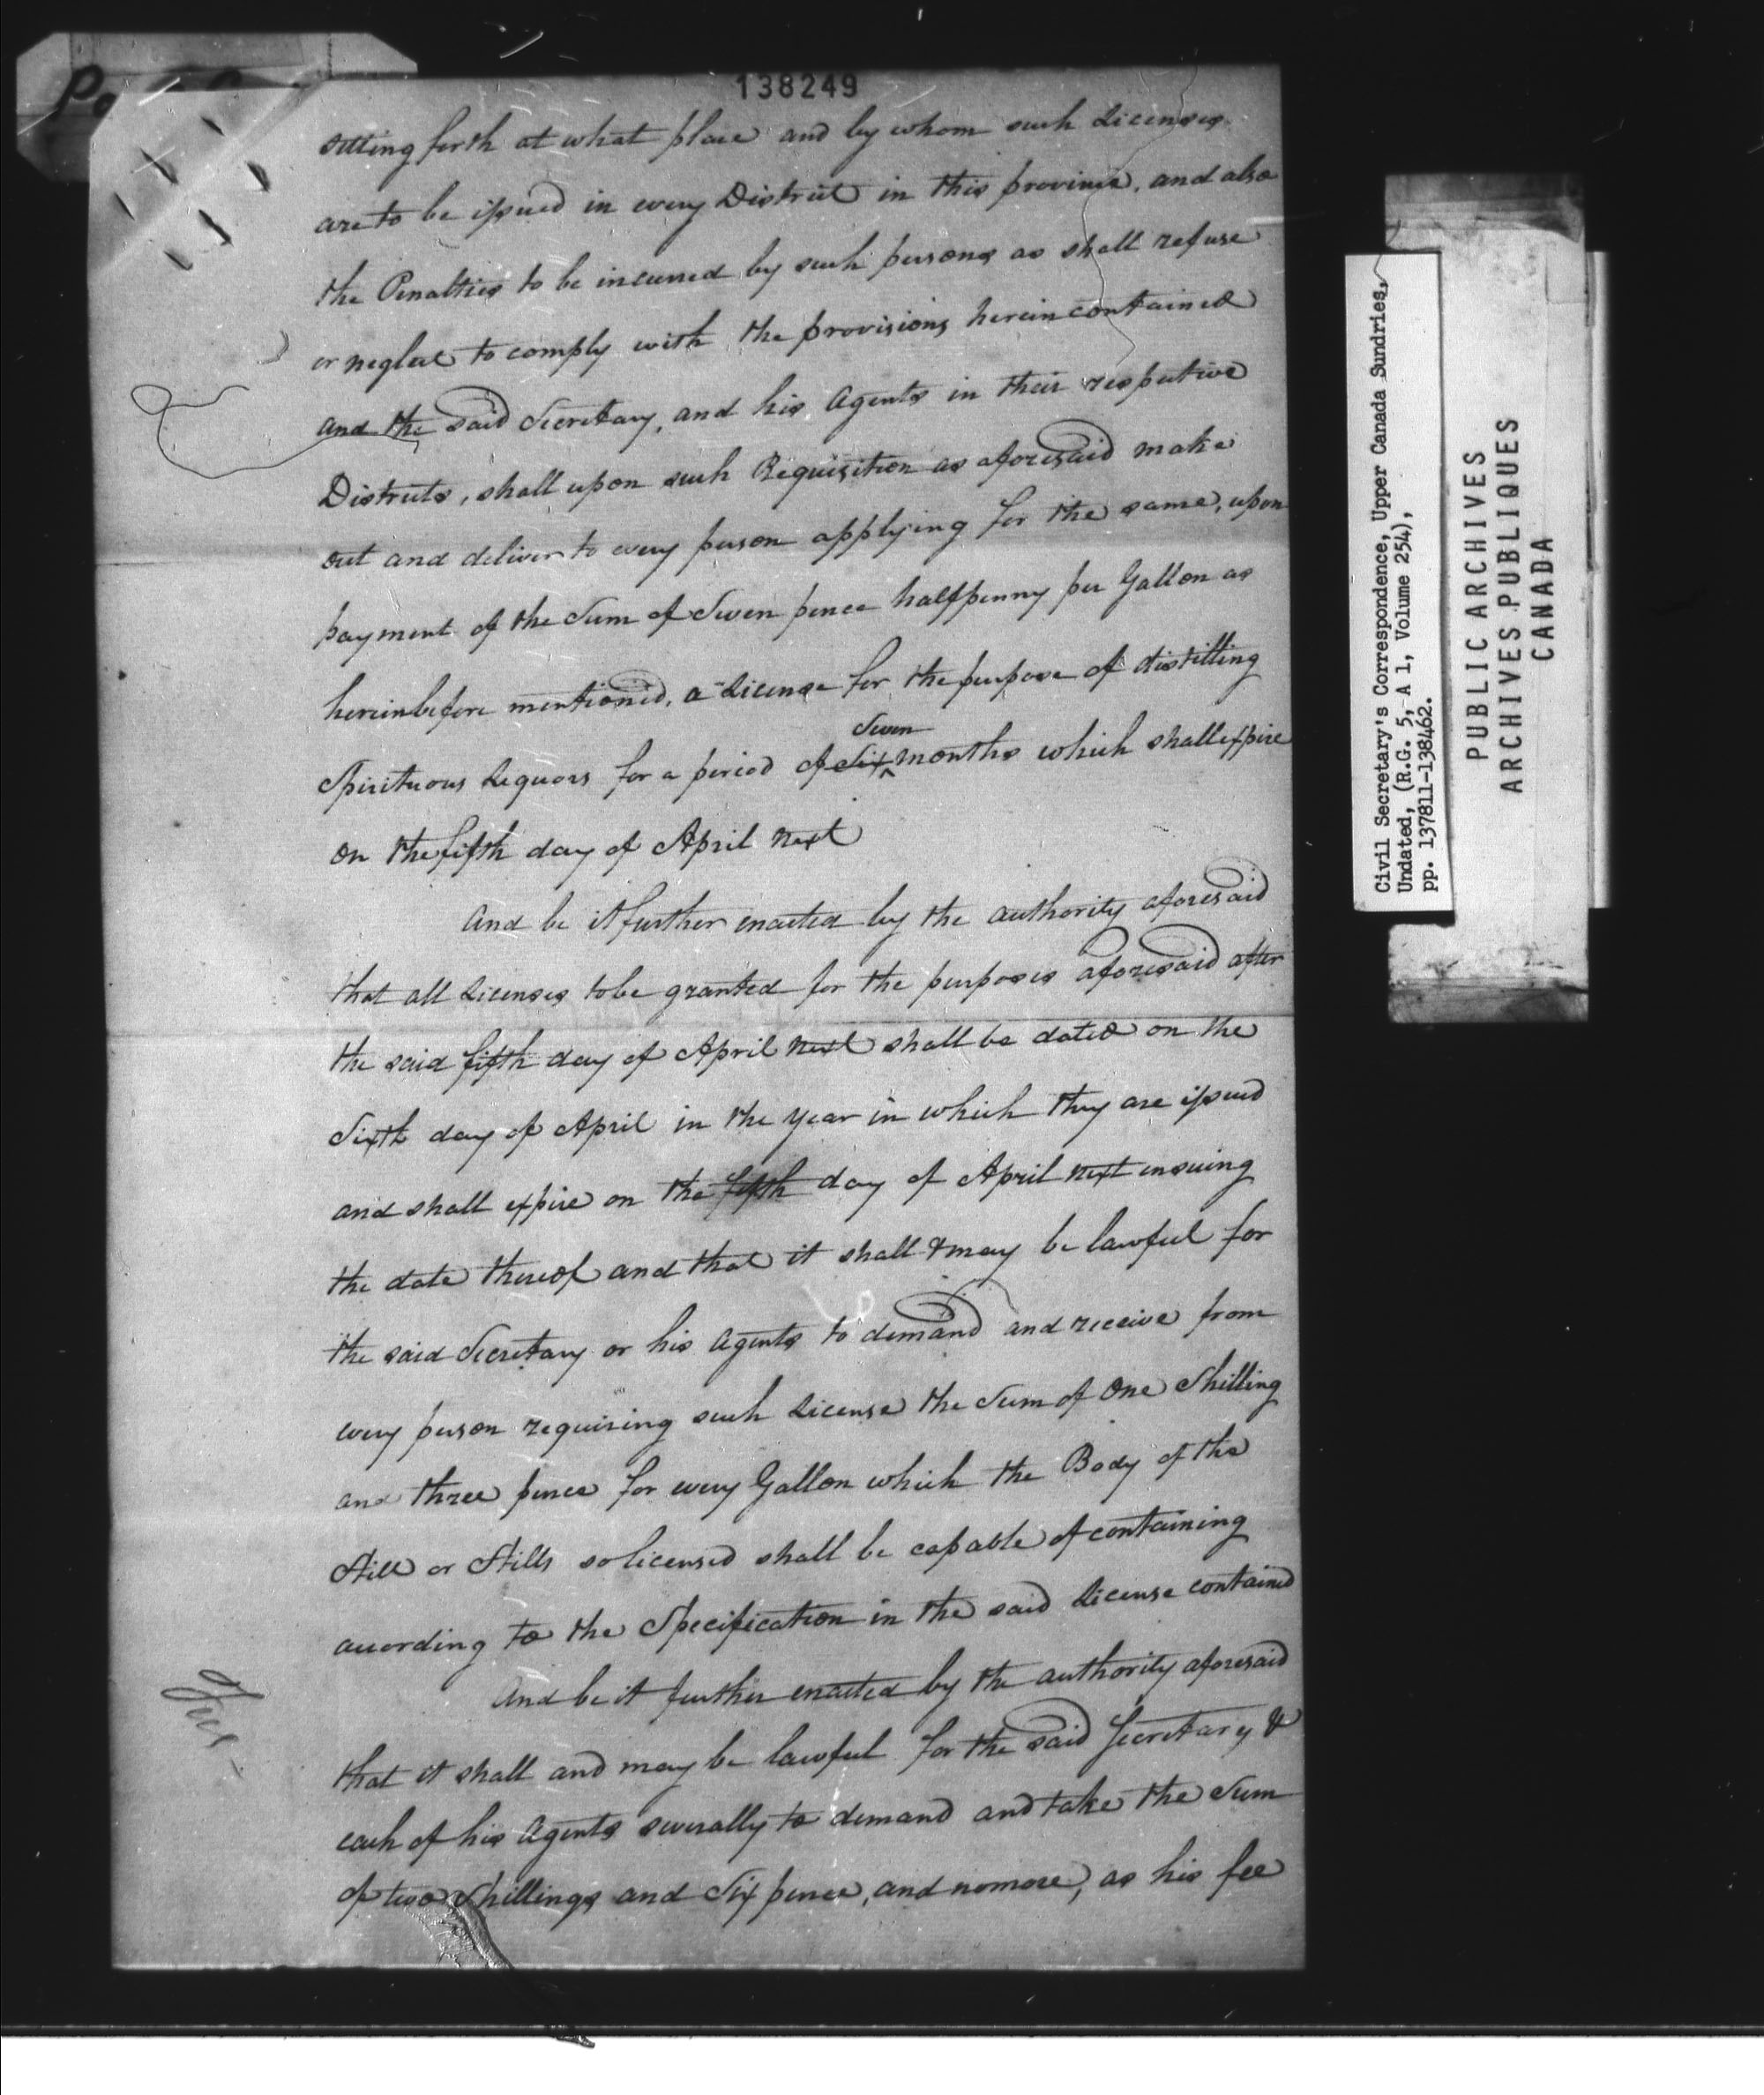 138249
setting forth at what place and by whom such Licenses
are to be issued in every District in this province, and also
the Penalties to be incurred by such persons as shall refuse
or neglect to comply with the provisions herein contained
and the said Secretary, and his Agents in their respective
Districts, shall upon such Requisition as aforesaid make
out and deliver to every person applying for the same, upon
payment of the Sum of Seven pence halfpenny per Gallon as
hereinbefore mentioned, a License for the purpose of distilling
Seven
Spirituous Liquors for a period of Six months which shall expire
on the fifth day of April next
And be it further enacted by the authority aforesaid
that all Licenses to be granted for the purposes aforesaid after
the said fifth day of April next shall be dated on the
Sixth day of April in the year in which they are issued
and shall expire on the fifth day of April next ensuing
the date thereof and that it shall & may be lawful for
the said Secretary or his Agents to demand and receive from
every person requiring such License the Sum of One Shilling
and three pence for every Gallon which the Body of the
Still or Stills so licensed shall be capable of containing
according to the Specification in the said License contained
And be it further enacted by the authority aforesaid
Fees -
that it shall and may be lawful for the said Secretary &
each of his Agents severally to demand and take the Sum
of two Shillings and Six pence, and no more, as his fee
Civil Secretary's Correspondence, Upper Canada Sundries,
Undated, (R.G. 5, A 1, Volume 254),
pp. 137811-138462.
PUBLIC ARCHIVES
ARCHIVES PUBLIQUES
CANADA